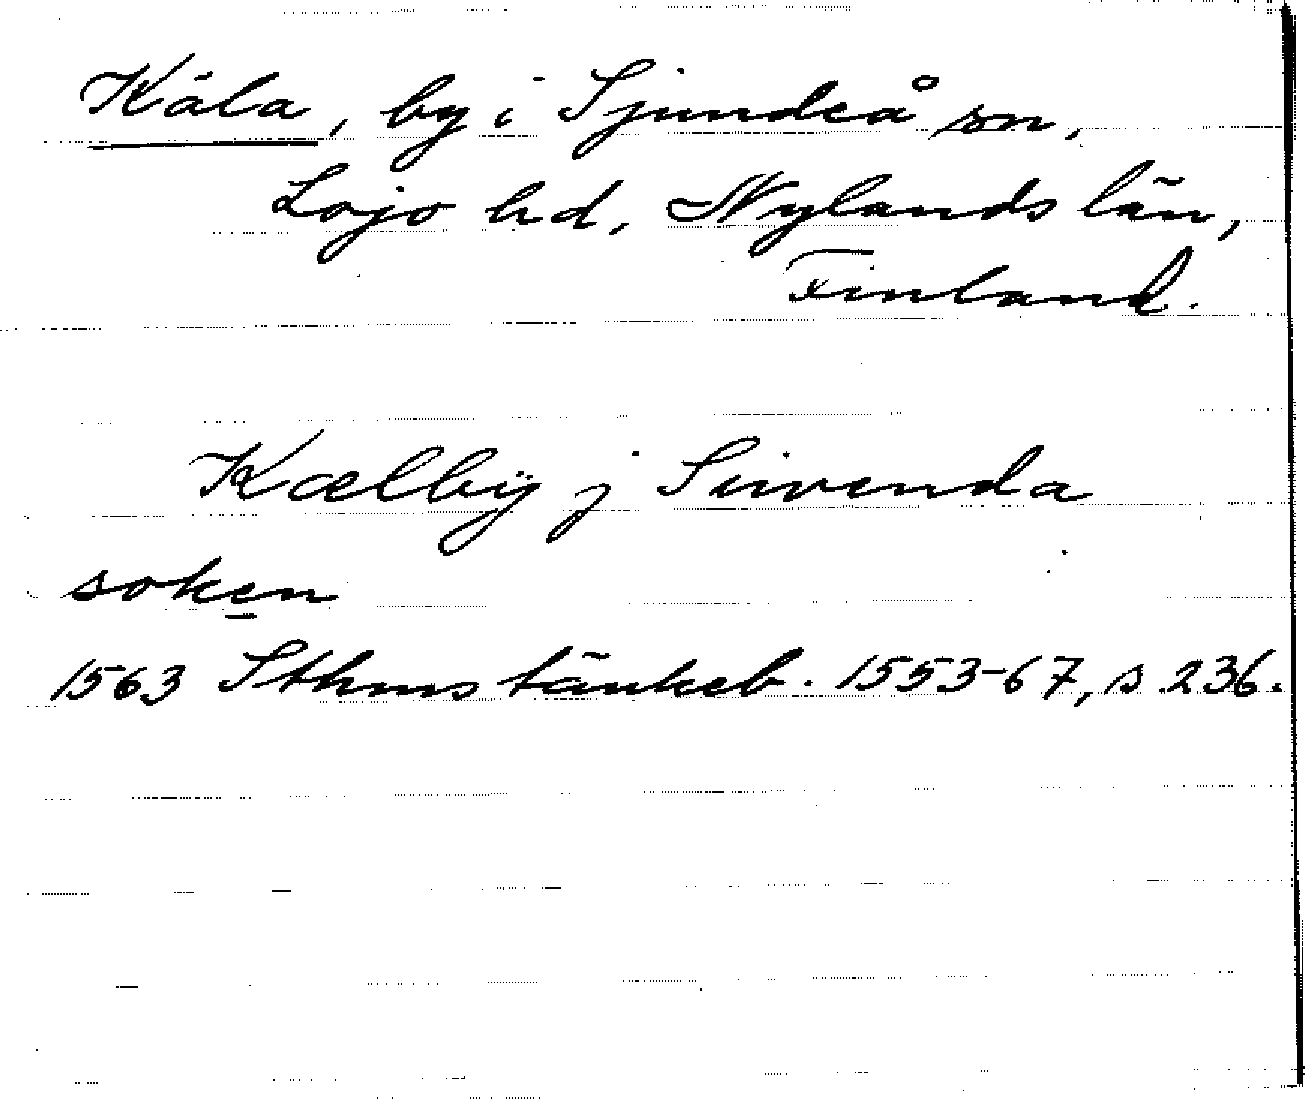 Käla, by i Sjundeå sn,
Lojo hd, Nylands län,
Finland.
Kælbÿ j Siwenda
soken
1563 Sthms tänkeb. 1553-67, s 236.